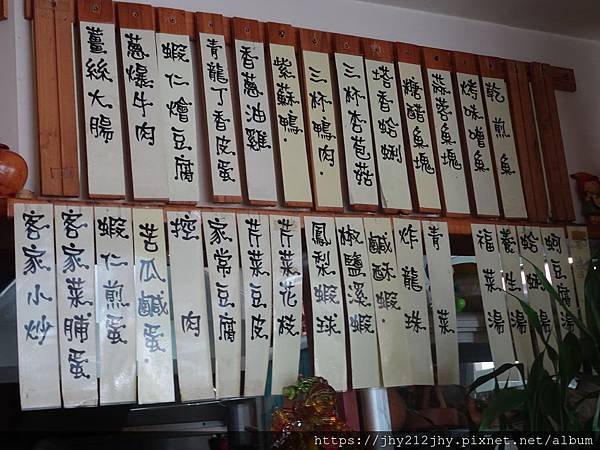 薑絲大腸
蔥爆牛肉
蝦仁燴豆腐
青龍丁香皮蛋
香蔥油雞
紫蘇鴨.
三杯鴨肉.
三杯杏苞菇
塔香蛤蜊
糖醋魚塊
蒜蓉魚塊
烤味噌魚
乾煎魚
客家小炒
客家菜脯蛋
蝦仁煎蛋
苦瓜鹹蛋.
控肉
家常豆腐
芹菜豆皮
芹菜花枝
鳳梨蝦球
椒鹽溪蝦
鹹酥蝦.
炸龍珠
青菜
福菜湯
養生湯
蛤蜊湯
蚵豆腐湯
https://jhy212jhy.pixnet.net/album